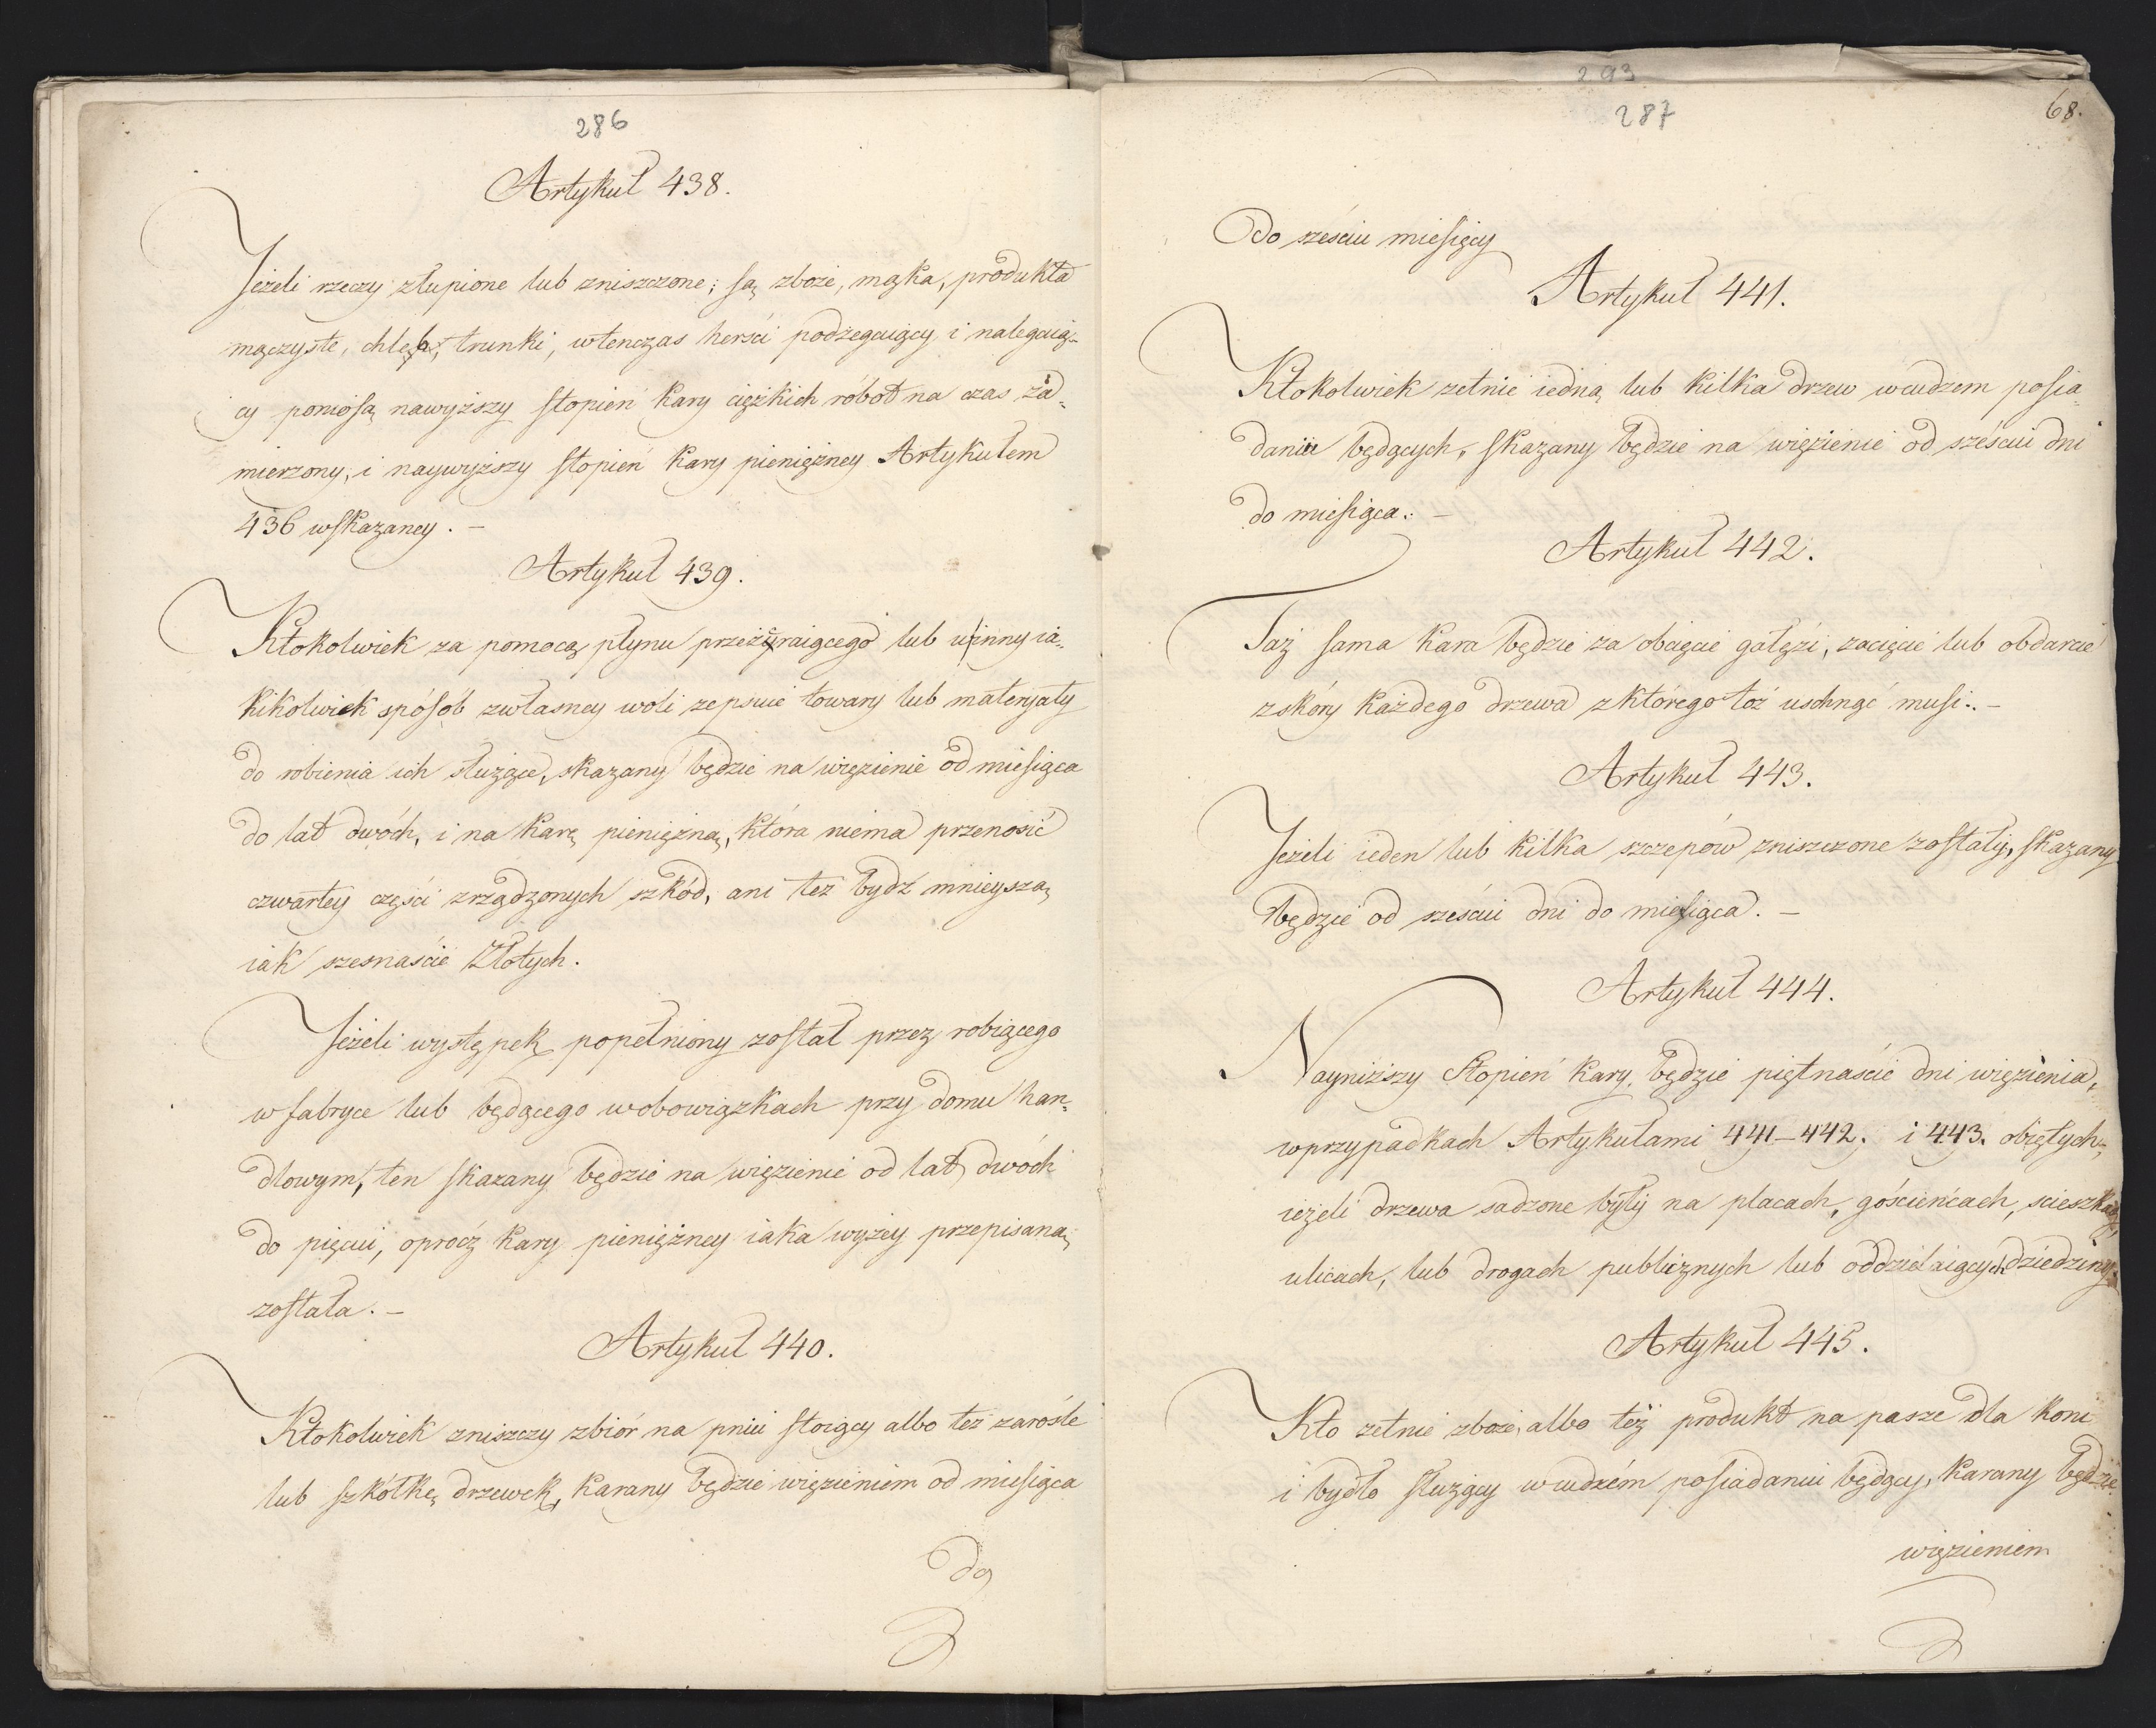 286
Artykuł 438.
Jeżeli rzeczy złupione lub zniszczone; są zboże, mąka, produkta
mączyste, chleb, trunki, wtenczas herści podżegaiący i nalegaią-
cy poniosą nawyższy stopień kary ciężkich robót na czas za-
mierzony, i naywyższy stopień kary pieniężney Artykułem
436 wskazaney. –
Artykuł 439.
Ktokolwiek za pomocą płynu przeżeraiącego lub w inny ia-
kikolwiek spósób zwłasney woli zepsuie towary lub materyały
do robienia ich służące, skazany będzie na więzienie od miesiąca
do lat dwóch, i na karę pieniężną, która niema przenosić
czwartey części zrządzonych szkód, ani też bydź mnieyszą,
iak szesnaście Złotych.
Jeżeli występek popełniony został przez robiącego
w fabryce lub będącego wobowiązkach przy domu han-
dlowym, ten skazany będzie na więzienie od lat dwóch
do pięciu, oprócz kary pieniężney iaka wyżey przepisaną
została. –
Artykuł 440.
Ktokolwiek zniszczy zbiór na pniu stoiący albo też zarośle
lub szkółkę drzewek, karany będzie więzieniem od miesiąca
do
293
287
68.
do sześciu miesięcy
Artykuł 441.
Ktokolwiek zetnie iedną lub kilka drzew wcudzem posia-
daniu będących, skazany będzie na więzienie od sześciu dni
do miesiąca. –
Artykuł 442.
Taż sama kara będzie za obcięcie gałęzi, zacięcie lub obdarcie
zskóry każdego drzewa zktórego toż uschnąć musi. –
Artykuł 443.
Jeżeli ieden lub kilka szczepów zniszczone zostały, skazany
będzie od sześciu dni do miesiąca. –
Artykuł 444.
Nayniższy Stopień kary, będzie piętnaście dni więzienia,
wprzypadkach Artykułami 441–442. i 443. obiętych,
ieżeli drzewa sadzone były na placach, gościeńcach, scieszkach,
ulicach, lub drogach publicznych lub oddzielaiących dziedziny.
Artykuł 445.
Kto zetnie zboże, albo też produkt na pasze dla koni
i bydło służący wcudzém posiadaniu będący, karany będzie
więzieniem